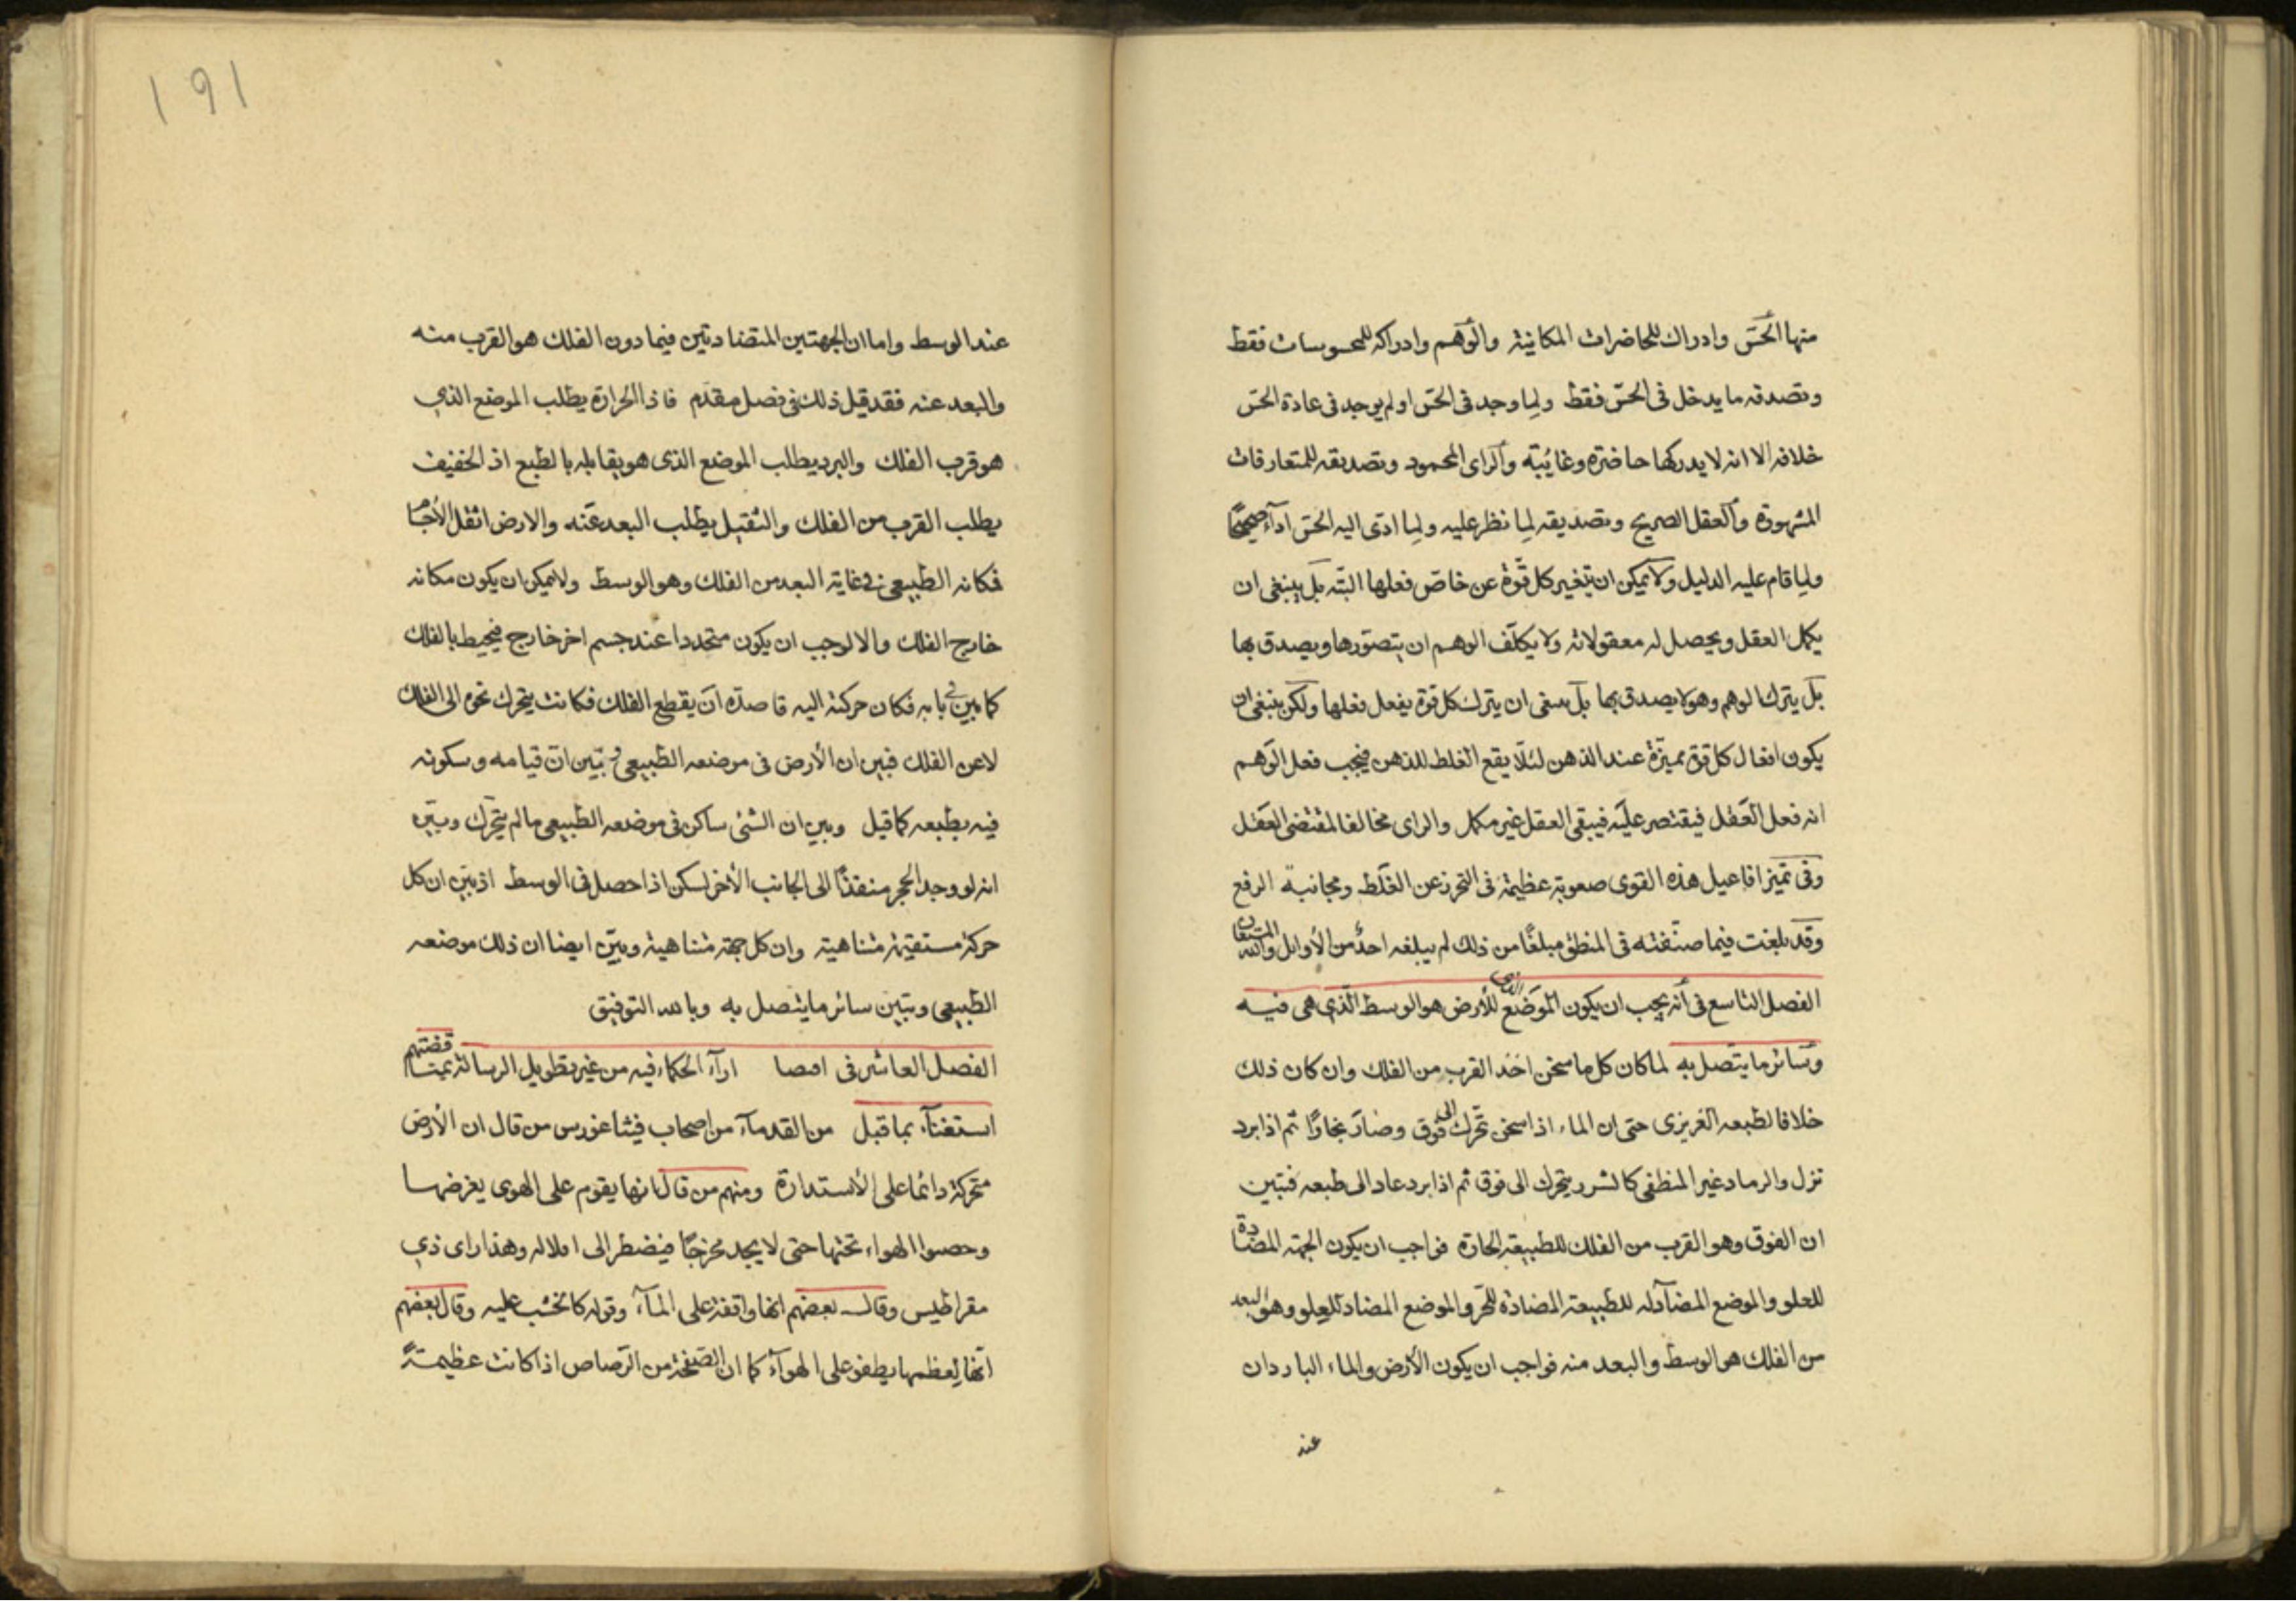 منها الحسّ وادراك للحاضرات المكانية والوهم وادراكه للمحسوسات فقط
وتصدقه ما يدخل فى الحسّ فقط ولما وجد فى الحسّ او لم يوجد فى عادة الحسّ
خلافه الا انه لا يدركها حاضرة وغائبة والراى المحمود وتصديقه للمتعارفات
المشهورة والعقل الصريح وتصديقه لما نظر عليه ولما ادّى اليه الحسّ اداء صحيحًا
ولما قام عليه الدليل ولا يمكن ان يتغير كل قوة عن خاصّ فعلها البتّه بل ينبغى ان
يكمل العقل ويحصل له معقولاته ولا يكلّف الوهم ان يتصوّرها ويصدق بها
بل يترك الوهم وهو لا يصدق بها بل ينبغى ان يترك كل قوة يفعل فعلها ولكن ينبغى ان
يكون افعال كل قوة مميزة عند الذهن لئلّا يقع الغلط للذهن فيجب فعل الوهم
انه فعل العقل فيقتصر عليه فيبقى العقل غير مكمل والراى مخالفا لمقتضى العقل
وفى تميز افاعيل هذه القوى صعوبة عظيمة فى التحرز عن الغلط ومجانبة الرفع
وقد بلغت فيما صنّفته فى المنطق مبلغًا من ذلك لم يبلغه احدٌ من الأوايل والله المستعان
الفصل التاسع فى أنه يجب ان يكون الموضع الذى للأرض هو الوسط الّذى هى فيه
وسائر ما يتصل به لما كان كل ما سخن اخذ القرب من الفلك وان كان ذلك
خلافا لطبعه الغريزى حتى ان الماء اذا سخن تحرّك الى فوق وصار بخارًا ثم اذا برد
نزل والرماد غير المنطفى كالشرر يتحرك الى فوق ثم اذا برد عاد الى طبعه فتبين
ان الفوق وهو القرب من الفلك للطبيعة الحارة فواجب ان يكون الجهة المضادة
للعلو والموضع المضاد له للطبيعة المضادة للحرّ والموضع المضاد للعلو وهو البعد
من الفلك هو الوسط والبعد منه فواجب ان يكون الأرض والماء الباردان
عند
١٩١
عند الوسط واما ان الجهتين المتضادتين فيما دون الفلك هو القرب منه
والبعد عنه فقد قيل ذلك فى فصل مقدّم فاذا الحرارة يطلب الموضع الذى
هو قرب الفلك والبرد يطلب الموضع الذى هو يقابله بالطبع اذ الخفيف
يطلب القرب من الفلك والثقيل يطلب البعد عنه والارض اثقل الأجسام
فكانه الطبيعى فى غاية البعد من الفلك وهو الوسط ولا يمكن ان يكون مكانه
خارج الفلك والا لوجب ان يكون متحددا عند جسم اخر خارج فيحيط بالفلك
كما بين فى بابه فكان حركته اليه قاصدّه ان يقطع الفلك فكانت يتحرك نحوه الى الفلك
لا عن الفلك فبين ان الأرض فى موضعه الطبيعى وتبيّن انّ قيامه وسكونه
فيه بطبعه كما قيل وبين ان الشئ ساكن فى موضعه الطبيعى ما لم يتحرّك وبيّن
انه لو وجد الحجر منفذًا الى الجانب الأخر لسكن اذا حصل فى الوسط اذ بين ان كل
حركة مستقيمة متناهية وان كل جهة متناهية وبيّن ايضا ان ذلك موضعه
الطبيعى وتبين سائر ما يتصل به وبالله التوفيق
الفصل العاشر فى اقصا اراء الحكماء فيه من غير تطويل الرسالة قضتهم
استغناء بما قبل من القدماء من اصحاب فيثاغورس من قال ان الأرض
متحركة دائما على الأستدارة ومنهم من قال انها يقوم على الهوى يعرضها
وحصوا الهواء تحتها حتى لا يجد مخرجًا فيضطر الى اقلاله وهذا راى ذى
مقراطيس وقال بعضهم انها واقفة على الماء وقوله كالخشب عليه وقال بعضهم
انّها لعظمها يطفو على الهواء كما ان الصفيحة من الرّصاص اذا كانت عظيمةً